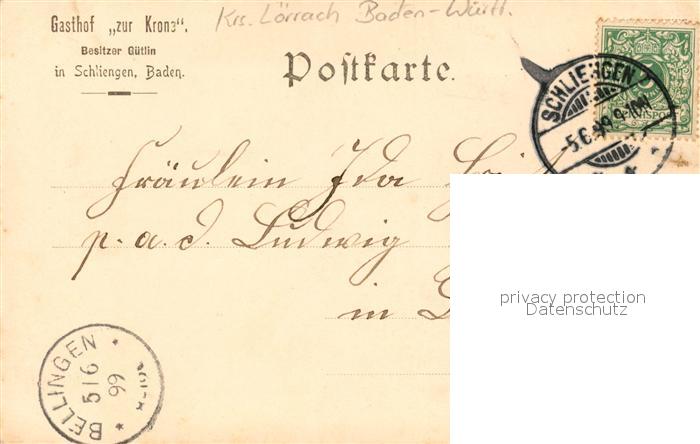 Gasthof „zur Krone“.
Besitzer Gütlin
in Schliengen, Baden.
Krs. Lörrach Baden-Württ.
Postkarte.
SCHLIENGEN
-5.6.99.9-10V
Fräulein Ida
p. a. d. Ludwig
in
privacy protection
Datenschutz
BELLINGEN
5/6
99